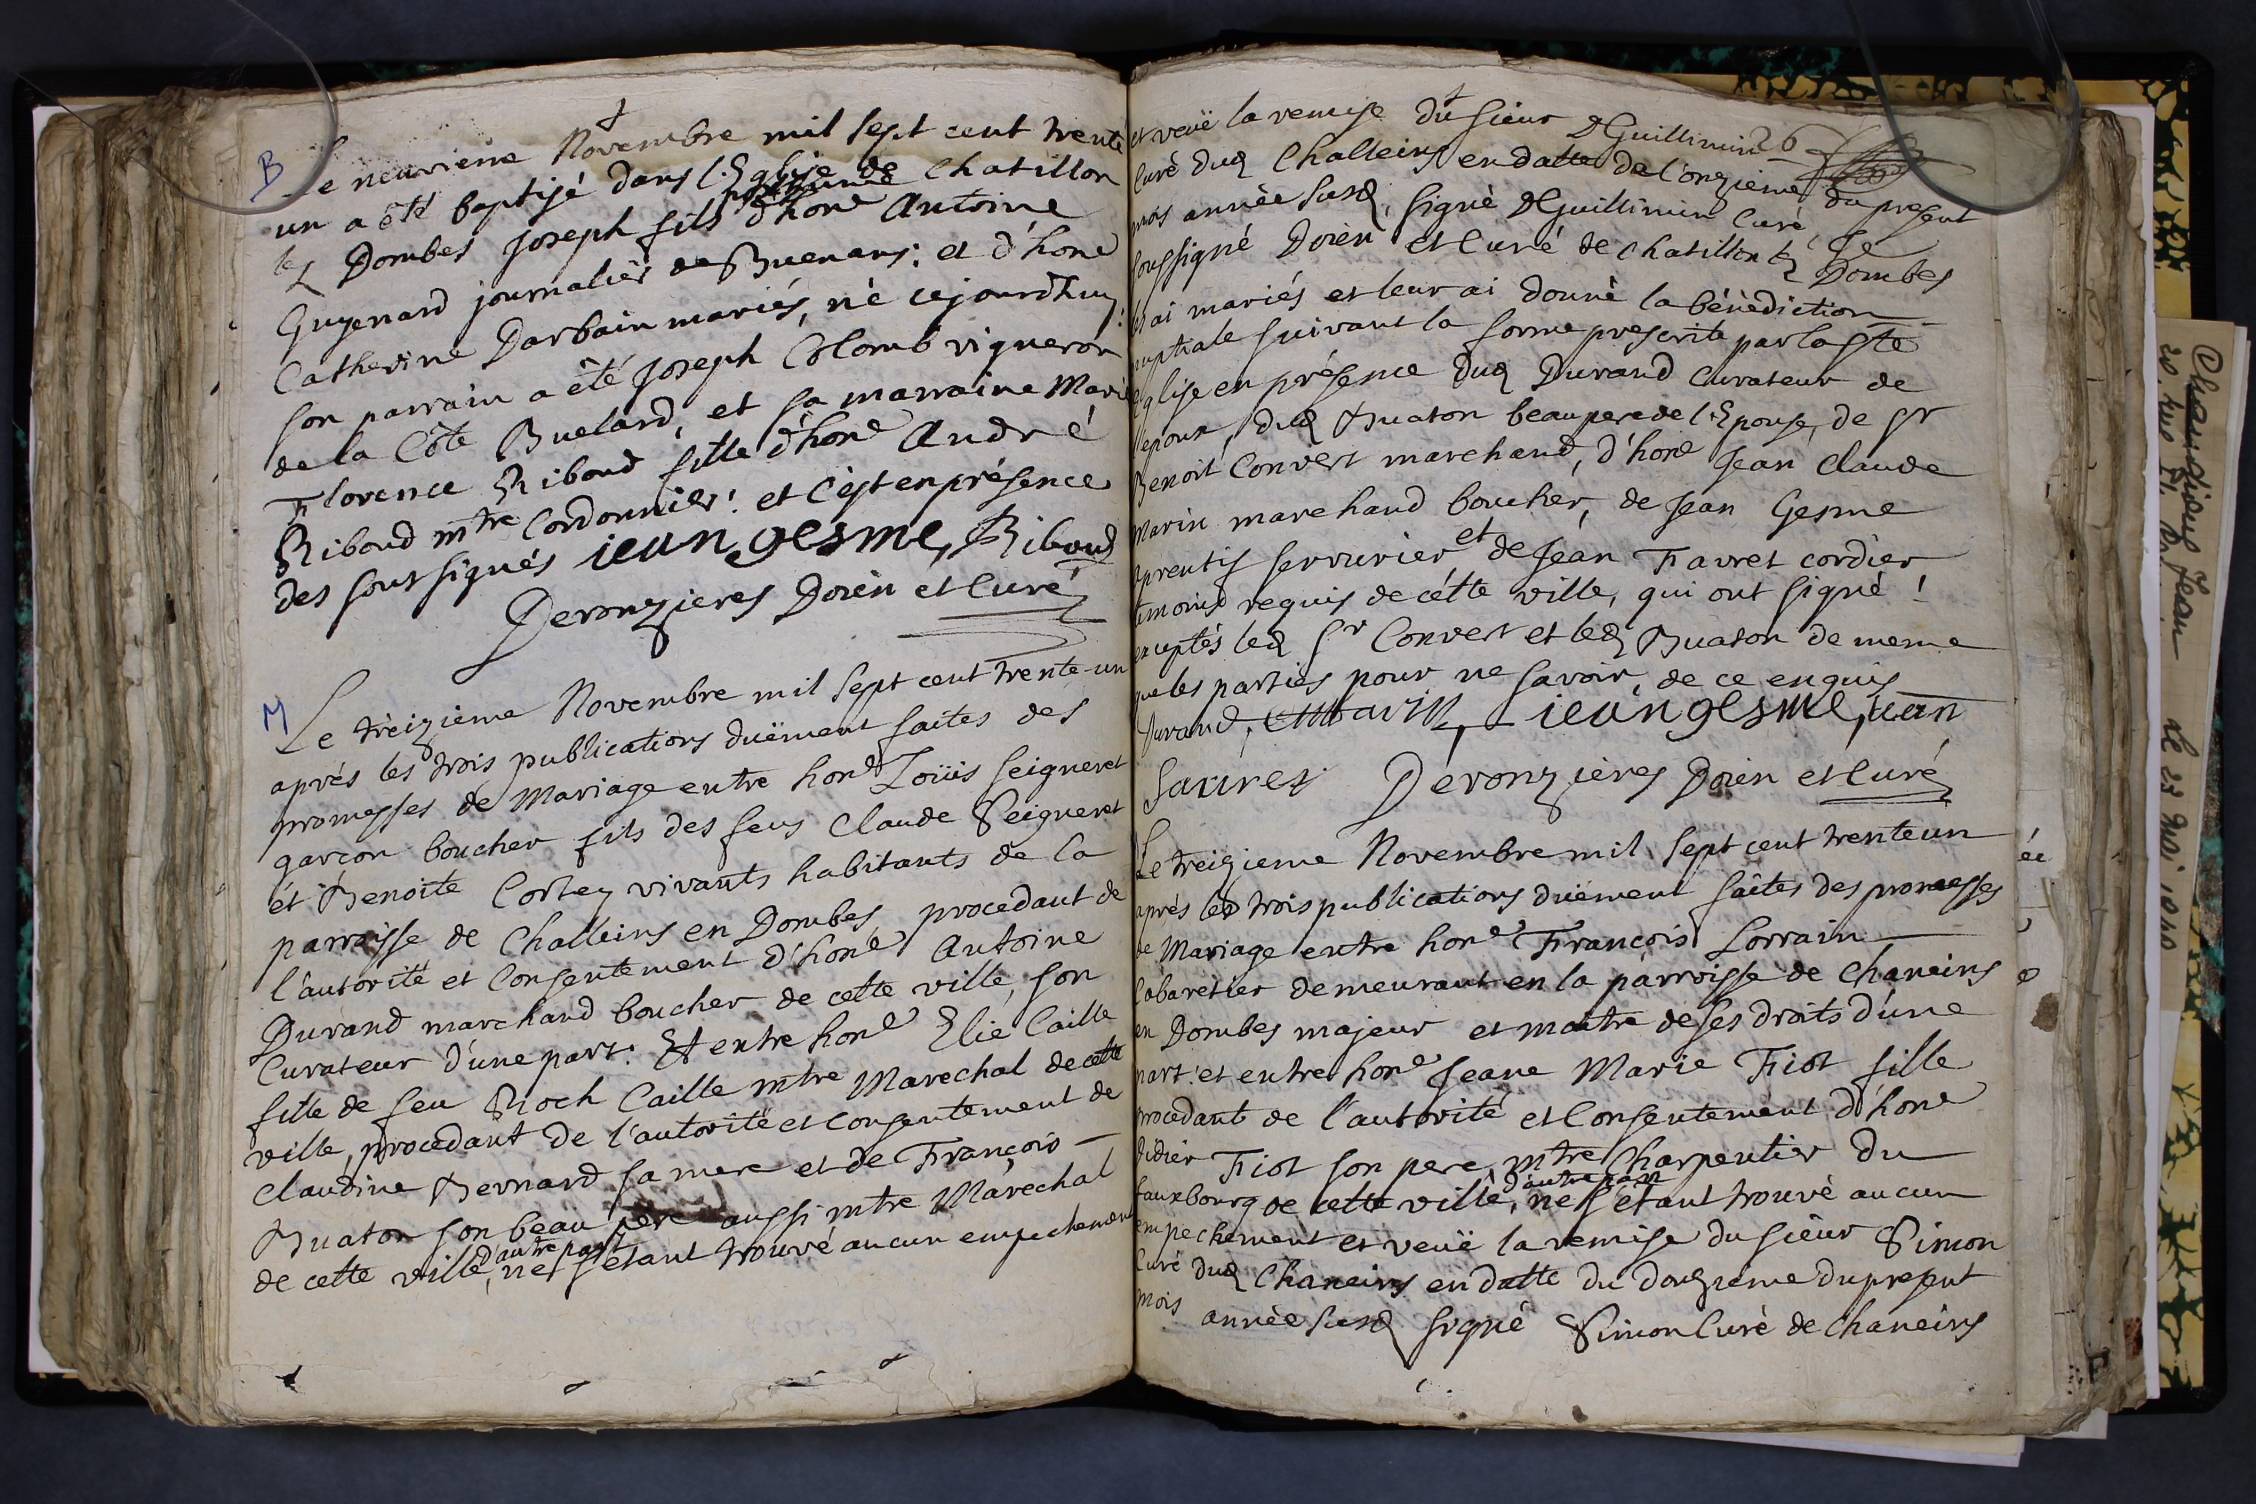 B Le neuvieme Novembre mil sept cent trente
un a été baptisé dans l'Eglise de Chatillon
lez Dombes Joseph fils posthume d'hone Antoine
Guyenard journalier de Buenans: et d'hone
Catherine Darbain mariés, né cejourd'huy:
son parrain a été Joseph Colomb vigneron
de la Côte Buelard, et sa marraine Marie
Florence Riboud fille d'hone André
Riboud mtre Cordonnier: et c'est en présence
des soussignés jean gesme, Riboud
Deronzieres Doïen et Curé
M Le treizieme Novembre mil sept cent trente-un
aprés les trois publications duëment faites des
promesses de Mariage entre hone Loüis Seigneret
garçon boucher fils des feus Claude Seigneret
et Benoite Cortey vivants habitants de la
parroisse de Challeins en Dombes, procedant de
l'autorité et Consentement d'hone Antoine
Durand marchand boucher de cette ville, son
Curateur d'une part: Et entre hone Elie Caille
fille de feu Roch Caille mtre Marechal de cette
ville, procedant de l'autorité et consentement de
Claudine Bernard sa mere et de François
Buaton son beau pere aussi mtre Maréchal
de cette ville, d'autre part ne s'étant trouvé aucun empechement
et veuë la remise du sieur DGuillimin 26
Curé dud Challeins en datte de l'onzieme du present
mois année susd, signé DGuillimin Curé, Je
soussigné Doïen et Curé de Chatillon lez Dombes
les ai mariés et leur ai donné la bénédiction
nuptiale suivant la forme prescrite par la Ste
Eglise en présence dud Durand Curateur de
l'epoux, dud Buaton beau pere de l'Epouse, de Sr
Benoit Convert marchand, d'hone Jean Claude
Marin marchand boucher, de Jean Gesme
aprentif serrurier et de Jean Favret cordier
temoins requis de cétte ville, qui ont signé!
exceptés led Sr Convert et led Buaton de meme
que les parties pour ne savoir, de ce enquis
Durand, Marin, jean gesme, jean
favret Deronzières Doïen et Curé
Le treizieme Novembre mil sept cent trente un
aprés les trois publications duëment faîtes des promesses
de Mariage entre hone François Lorrain
Cabaretier demeurant en la parroisse de Chaneins
en Dombes majeur et maitre de ses droits d'une
part: et entre hone Jeane Marie Fiot fille
procedant de l'autorité et Consentement d'hone
Didier Fiot son pere, mtre Charpentier du
fauxbourg de cette ville, d'autre part ne s'étant trouvé aucun
empechement et veuë la remise du sieur Simon
Curé dud Chaneins en datte du douzieme du present
mois année susd signé Simon Curé de Chaneins
Jean
le 23 mai 1940